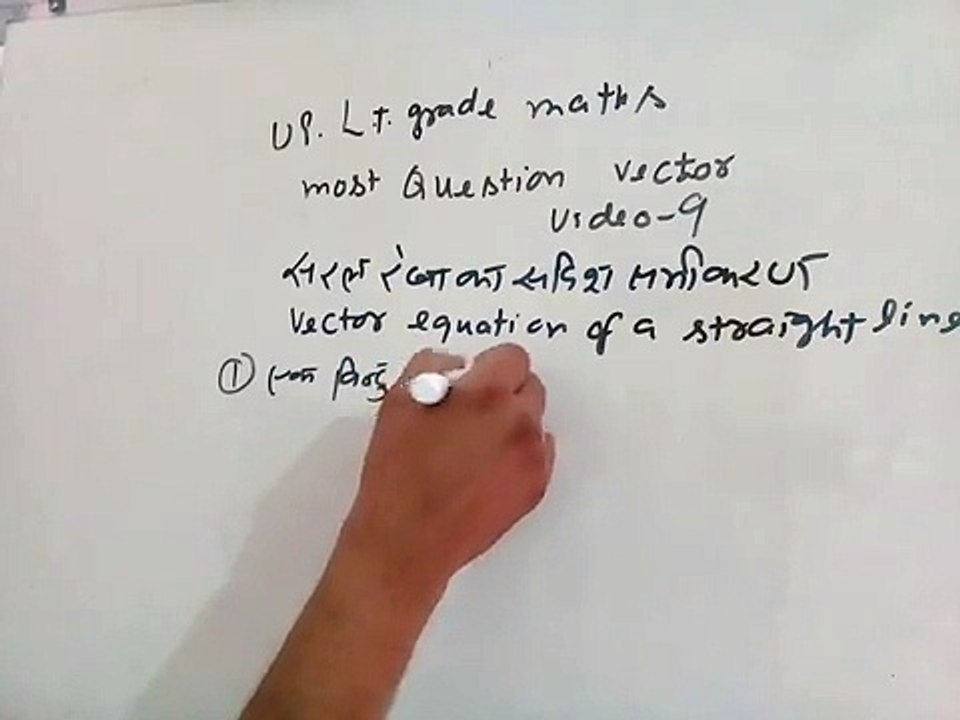 UP. L.T. grade maths
most Question vector
video-9
सरल रेखा का सदिश समीकरण
vector equation of a straight line
① एक बिन्दु